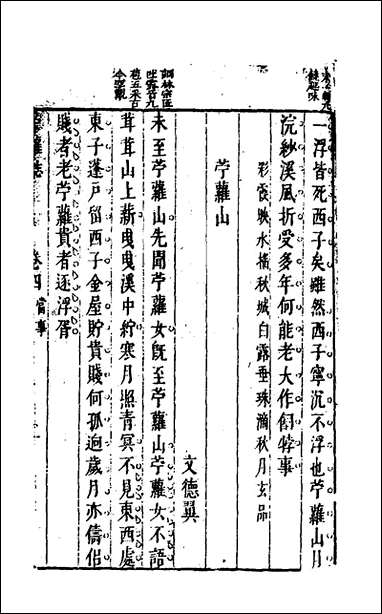 一浮昔死西子矣雖然西子寧沉不浮也苧蘿山月
浣紗溪風折受多年何能老大作個浮事
彩霞映水橫秋城白露垂珠滴秋月玄品
苧蘿山
文德翼
未至苧蘿山先聞苧蘿女既至苧蘿山苧蘿女不語
茸茸山上薪曳曳溪中紵寒月照青冥不見東西處
東子蓬戶留西子金屋貯貴賤何孤迥歲月亦儔侶
賤者老苧蘿貴者逐浮胥
卷四